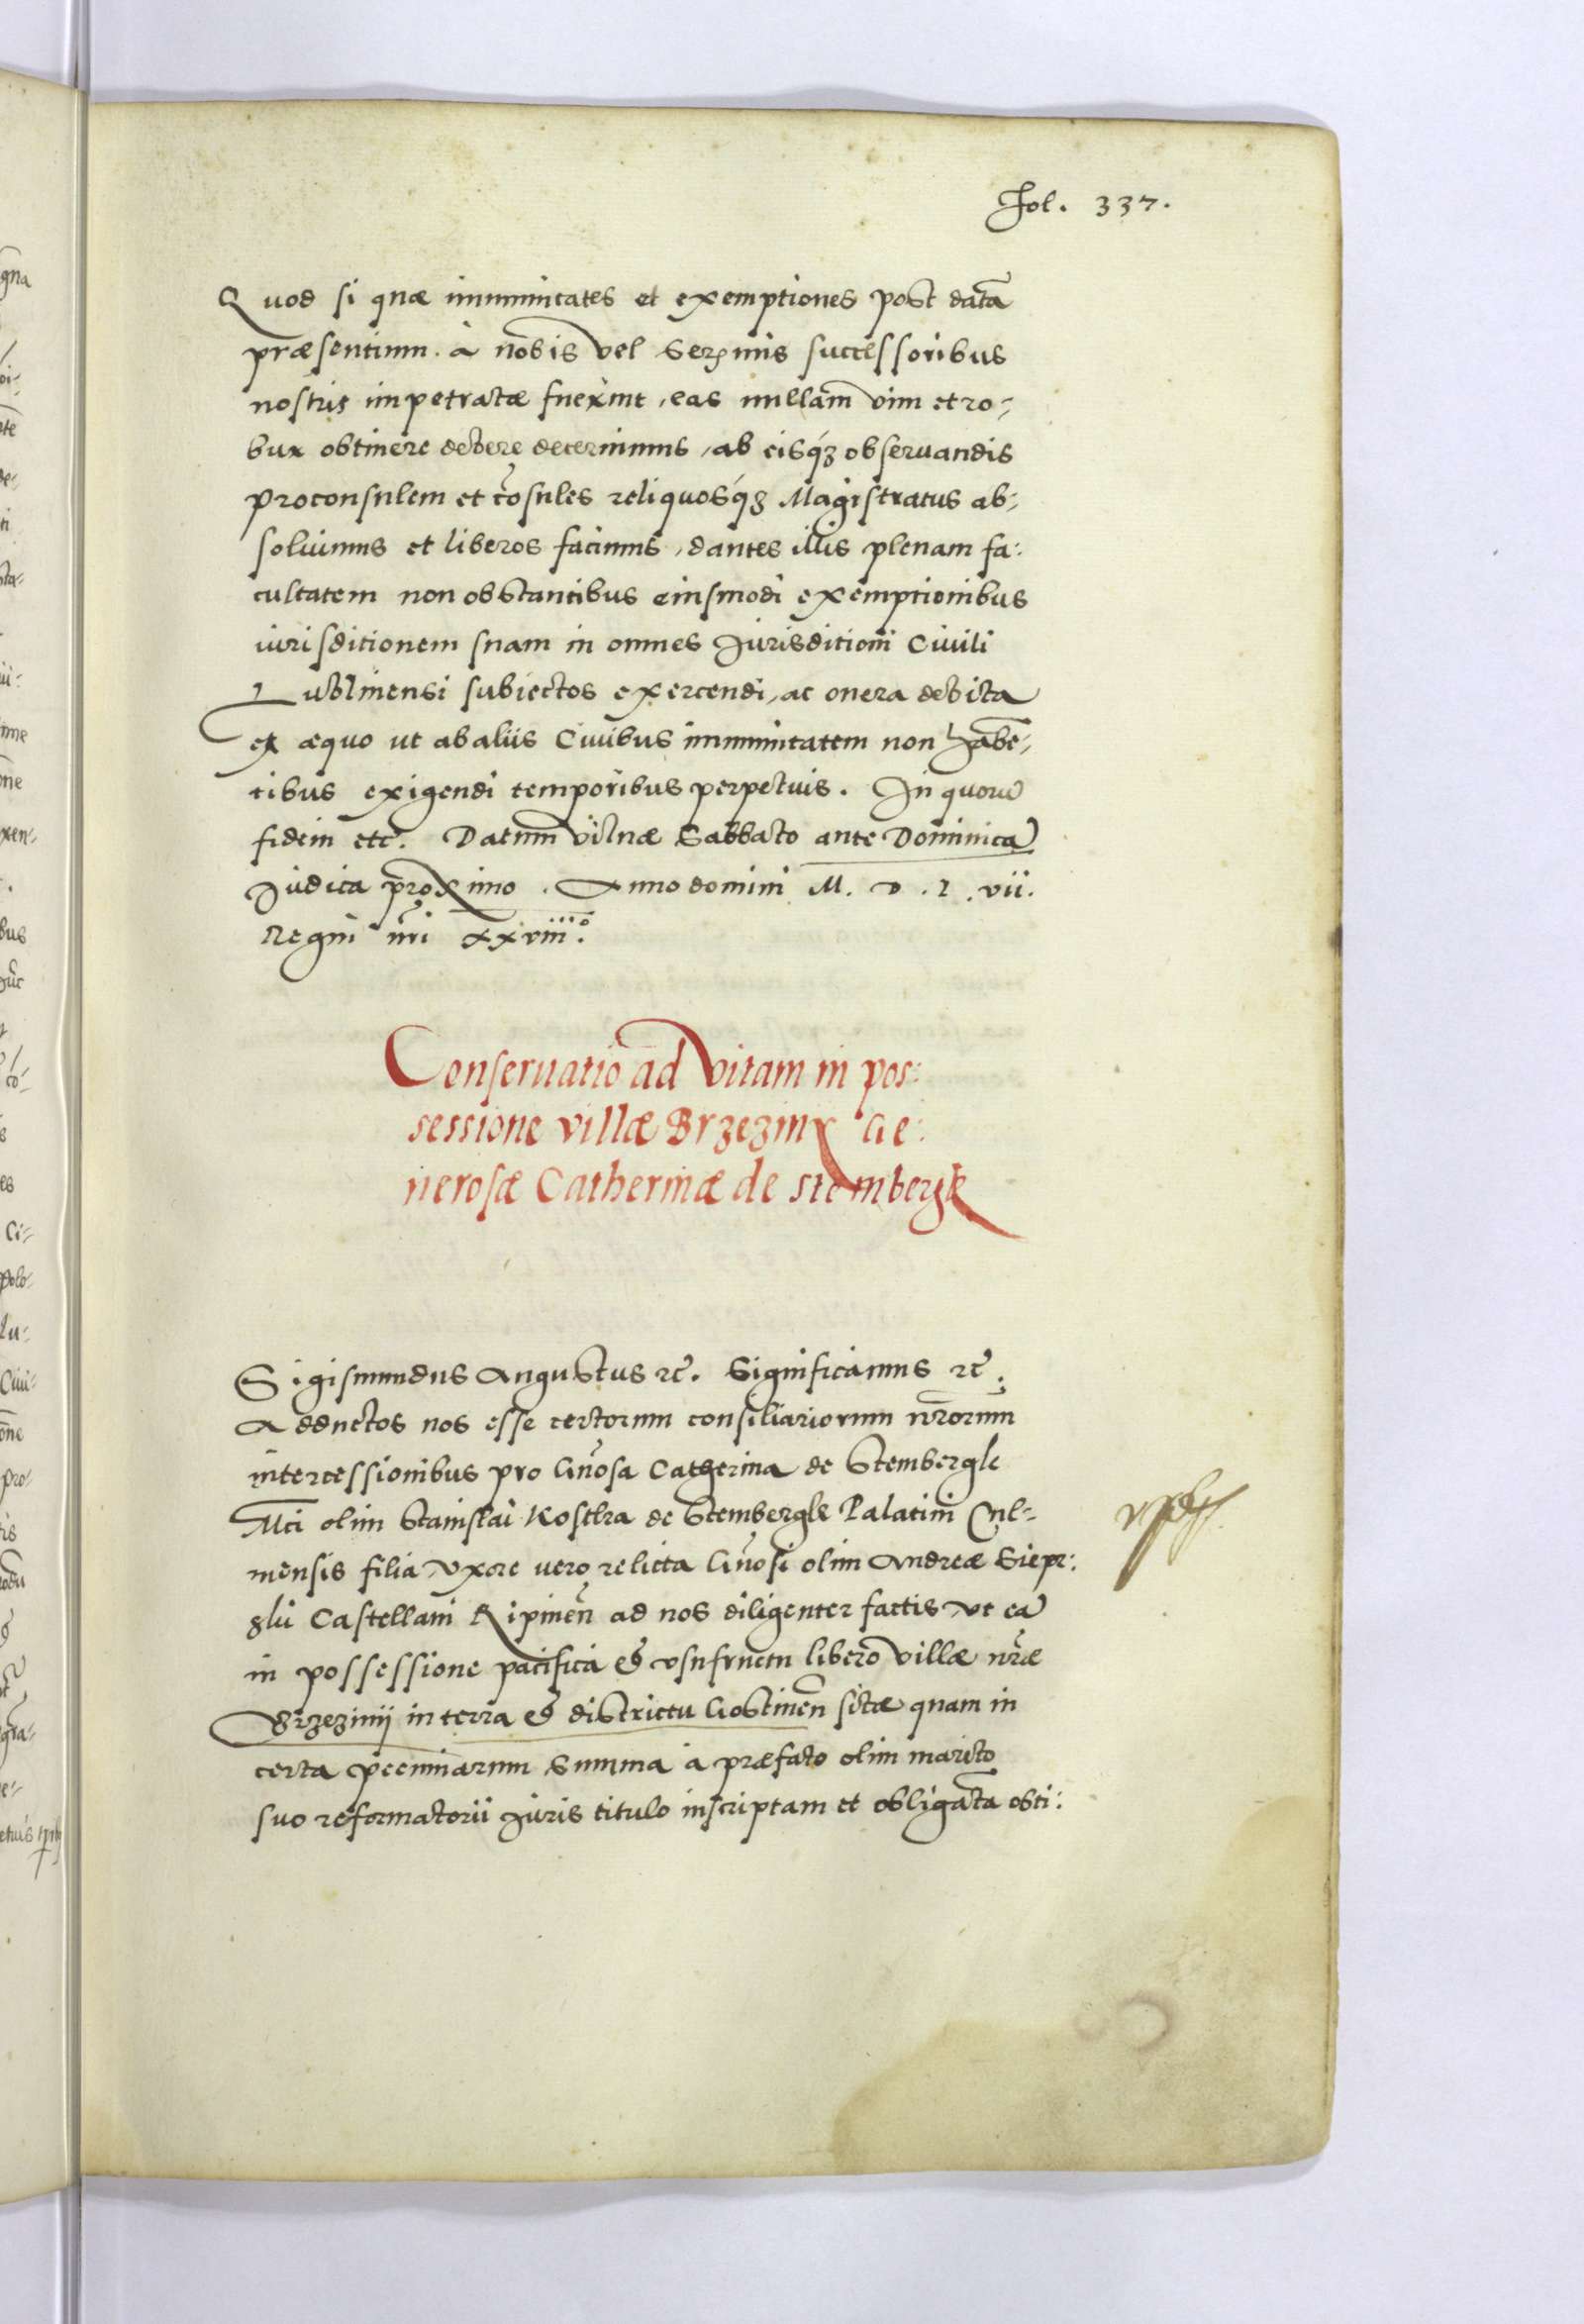 Fol. 337.
Quod si quæ immunitates et exemptiones post datā
præsentium à nobis vel Ser.mis successoribus
nostris impetratæ fuerint, eas nullam vim et ro-
bur obtinere debere decernimus, ab eisq́ꝫ observandis
proconsulem et cōsules reliquosq́ꝫ Magistratus ab-
soluimus et liberos facimus, dantes illis plenam fa:
cultatem non obstantibus eiusmodi exemptionibus
iurisditionem suam in omnes Jurisditioni Ciuili
Lublinensi subiectos exercendi, ac onera debita
ex æquo ut ab aliis Ciuibus immunitatem non habē-
tibus exigendi temporibus perpetuis. In quorū
fidem etc. Datum Vilnæ Sabbato ante Dominicā
Judica proximo. Anno domini M. D. L. vii.
Regni nr̄i xxviii°.
Conseruatio ad vitam in pos:
sessione villæ Brzezinÿ Ge:
nerosæ Catherinæ de Stembergk
Sigismundus Augustus ꝛc̄. Significamus ꝛc̄.
Adductos nos esse certorum consiliariorum nr̄orum
intercessionibus pro Gn̄osa Catherina de Stembergk
Mci olim Stanislai Kostka de Stembergk Palatini Cul-
mensis filia vxore vero relicta Gn̄osi olim Andreæ Siepr:
skii Castellani Ripinen̄ ad nos diligenter factis vt eā
in possessione pacifica & vsufructu libero villæ nr̄æ
Brzezinij in terra & districtu Gostinen̄ sitæ quam in
certa pecuniarum summa à præfato olim marito
suo reformatorii Juris titulo inscriptam et obligatā obti: